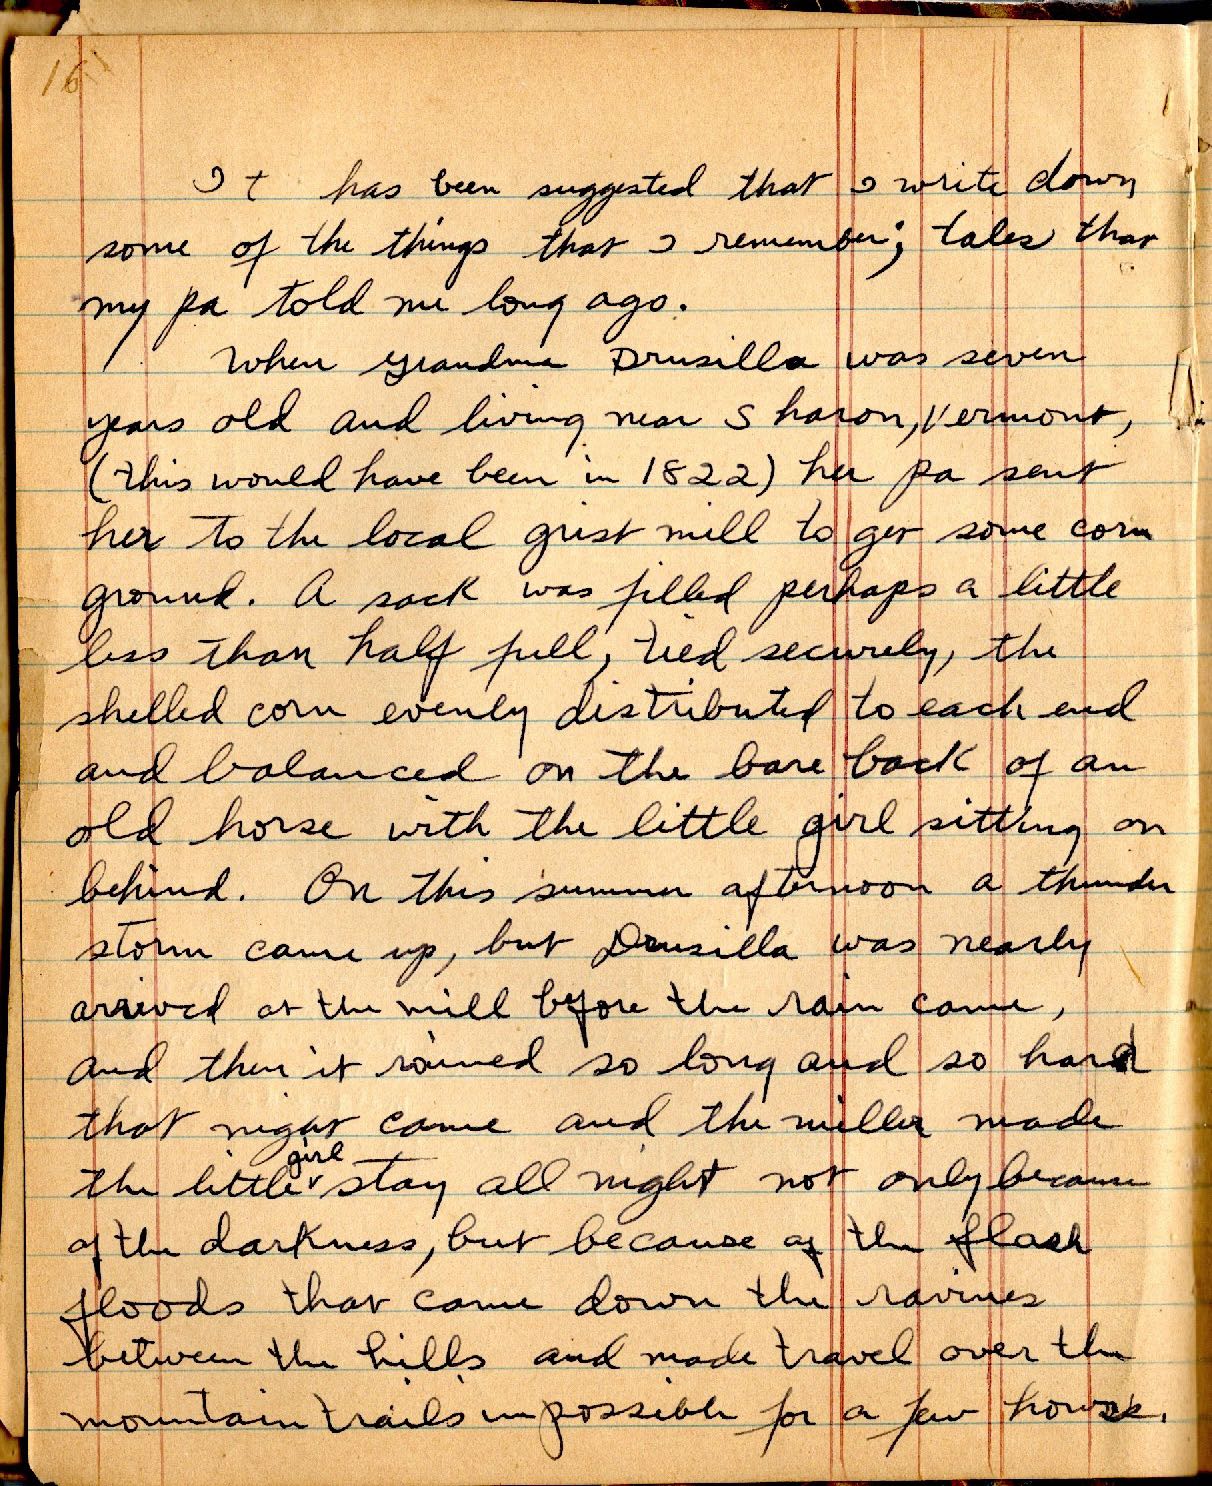 16
It has been suggested that I write down
some of the things that I remember; tales that
my pa told me long ago.
When grandma Drusilla was seven
years old and living near Sharon, Vermont,
(this would have been in 1822) her pa sent
her to the local grist mill to get some corn
ground. A sack was filled perhaps a little
less than half full, tied securely, the
shelled corn evenly distributed to each end
and balanced on the bare back of an
old horse with the little girl sitting on
behind. On this summer afternoon a thunder
storm came up, but Drusilla was nearly
arrived at the mill before the rain came,
and then it rained so long and so hard
that night came and the miller made
girl
the little stay all night not only because
of the darkness, but because of the flash
floods that came down the ravines
between the hills and made travel over the
mountain trails impossible for a few hours.